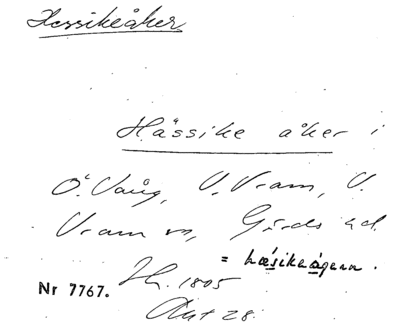 Hessikeåker
Hässike åker i
Ö. Vång, V. Vram, V.
Vram sn, Gärds hd.
= hæsikeågern.
Nr 7767. Sk. 1805
Akt 28.